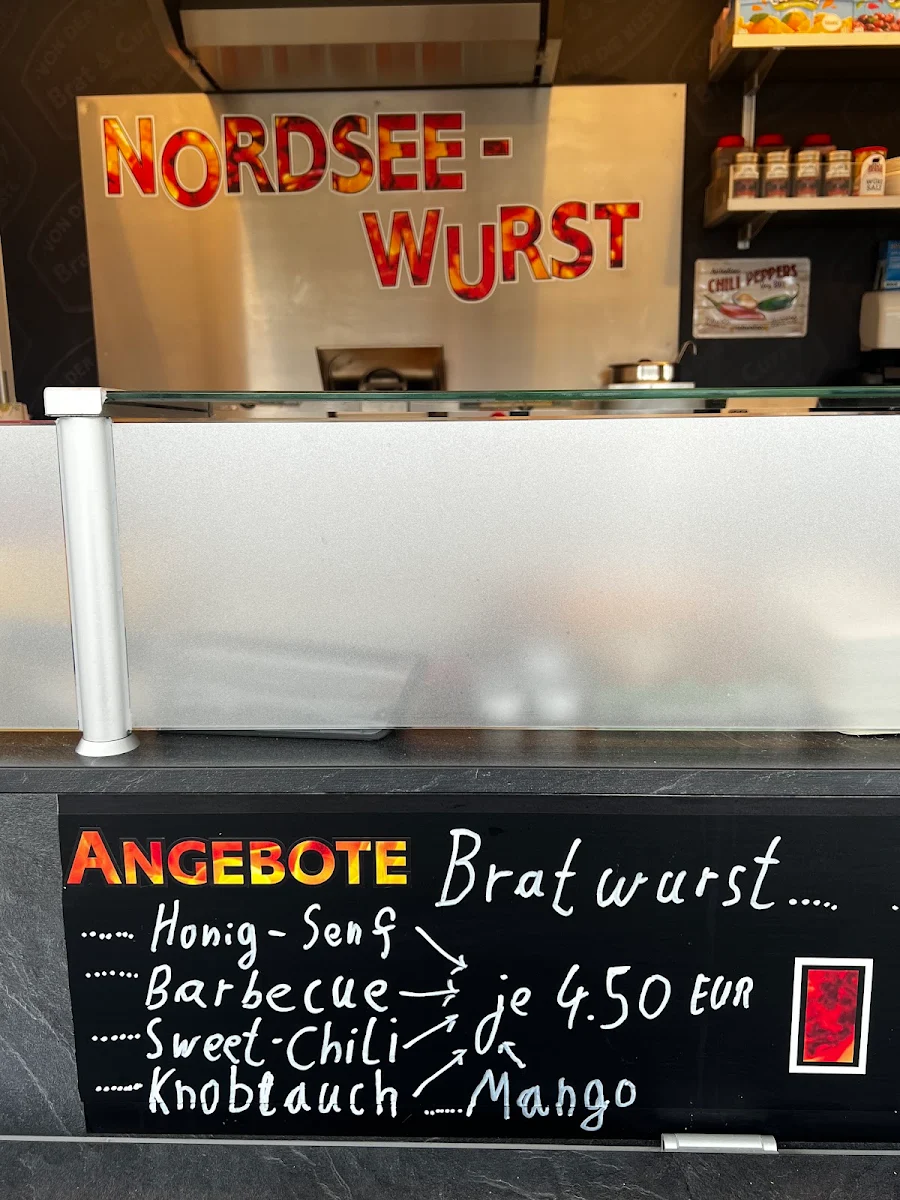 NORDSEE-
WURST
CHILI PEPPERS
ANGEBOTE Bratwurst.....
...... Honig-Senf
...... Barbecue
je 4.50 EUR
...... Sweet-Chili
...... Knoblauch
...... Mango